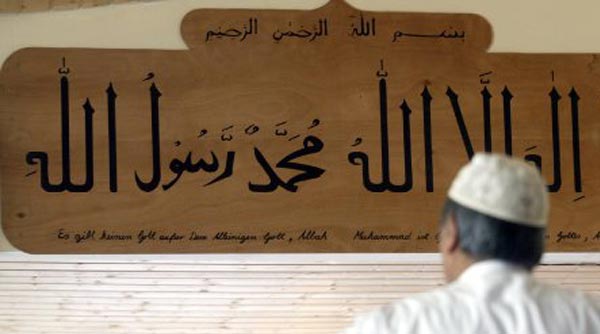 بِسْمِ اللهِ الرَّحْمٰنِ الرَّحِيْمِ
اِلٰهَ اِلَّا اللهُ مُحَمَّدٌ رَّسُوْلُ اللهِ
Es gibt keinen Gott außer dem Alleinigen Gott, Allah Muhammad ist